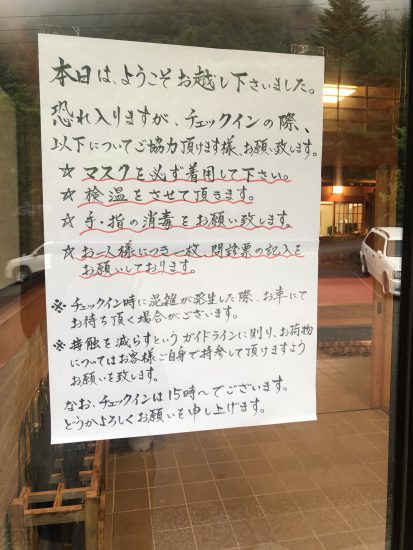 本日は、ようこそお越し下さいました。
恐れ入りますが、チェックインの際、
以下についてご協力頂けます様、お願い致します。
☆ マスクを必ず着用して下さい。
☆ 検温をさせて頂きます。
☆ 手・指の消毒をお願い致します。
☆ お一人様につき一枚、問診票の記入を
お願いしております。
※ チェックイン時に混雑が発生した際、お車にて
お待ち頂く場合がございます。
※ 接触を減らすというガイドラインに則り、お荷物
についてはお客様ご自身で持参して頂けますよう
お願いを致します。
なお、チェックインは15時〜でございます。
どうかよろしくお願いを申し上げます。